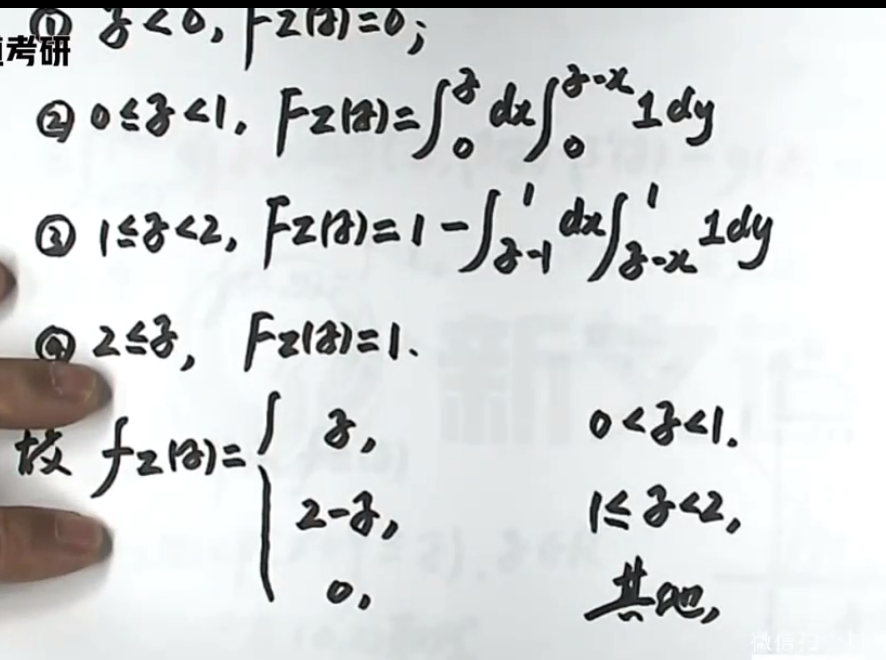 ① z<0, F_Z(z)=0;
考研
② 0≤z<1, F_Z(z)=∫₀^z dx∫₀^{z-x} 1dy
③ 1≤z<2, F_Z(z)=1-∫_{z-1}^1 dx∫_{z-x}^1 1dy
④ 2≤z, F_Z(z)=1.
故 f_Z(z)={ z, 0<z<1.
2-z, 1≤z<2,
0, 其他,
微信扫一扫